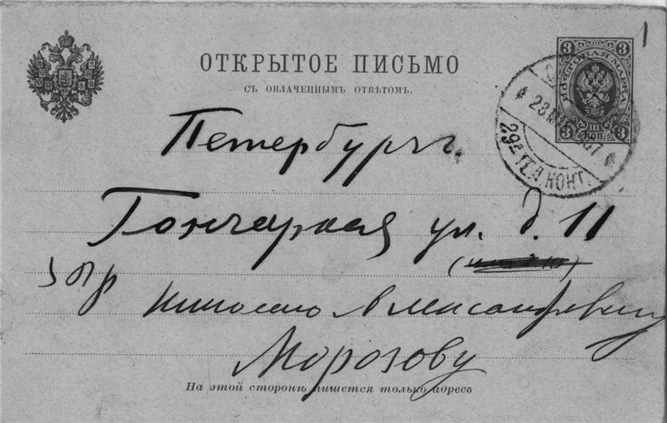 1
ОТКРЫТОЕ ПИСЬМО
СЪ ОПЛАЧЕННЫМЪ ОТВѢТОМЪ.
3 3
ПОЧТОВАЯ МАРКА
3 КОП. 3
29Е ГГ. П. КОНТ.
Петербургъ.
Гончарная ул. д. 11
Николаю Александровичу
Морозову
На этой сторонѣ пишется только адресъ